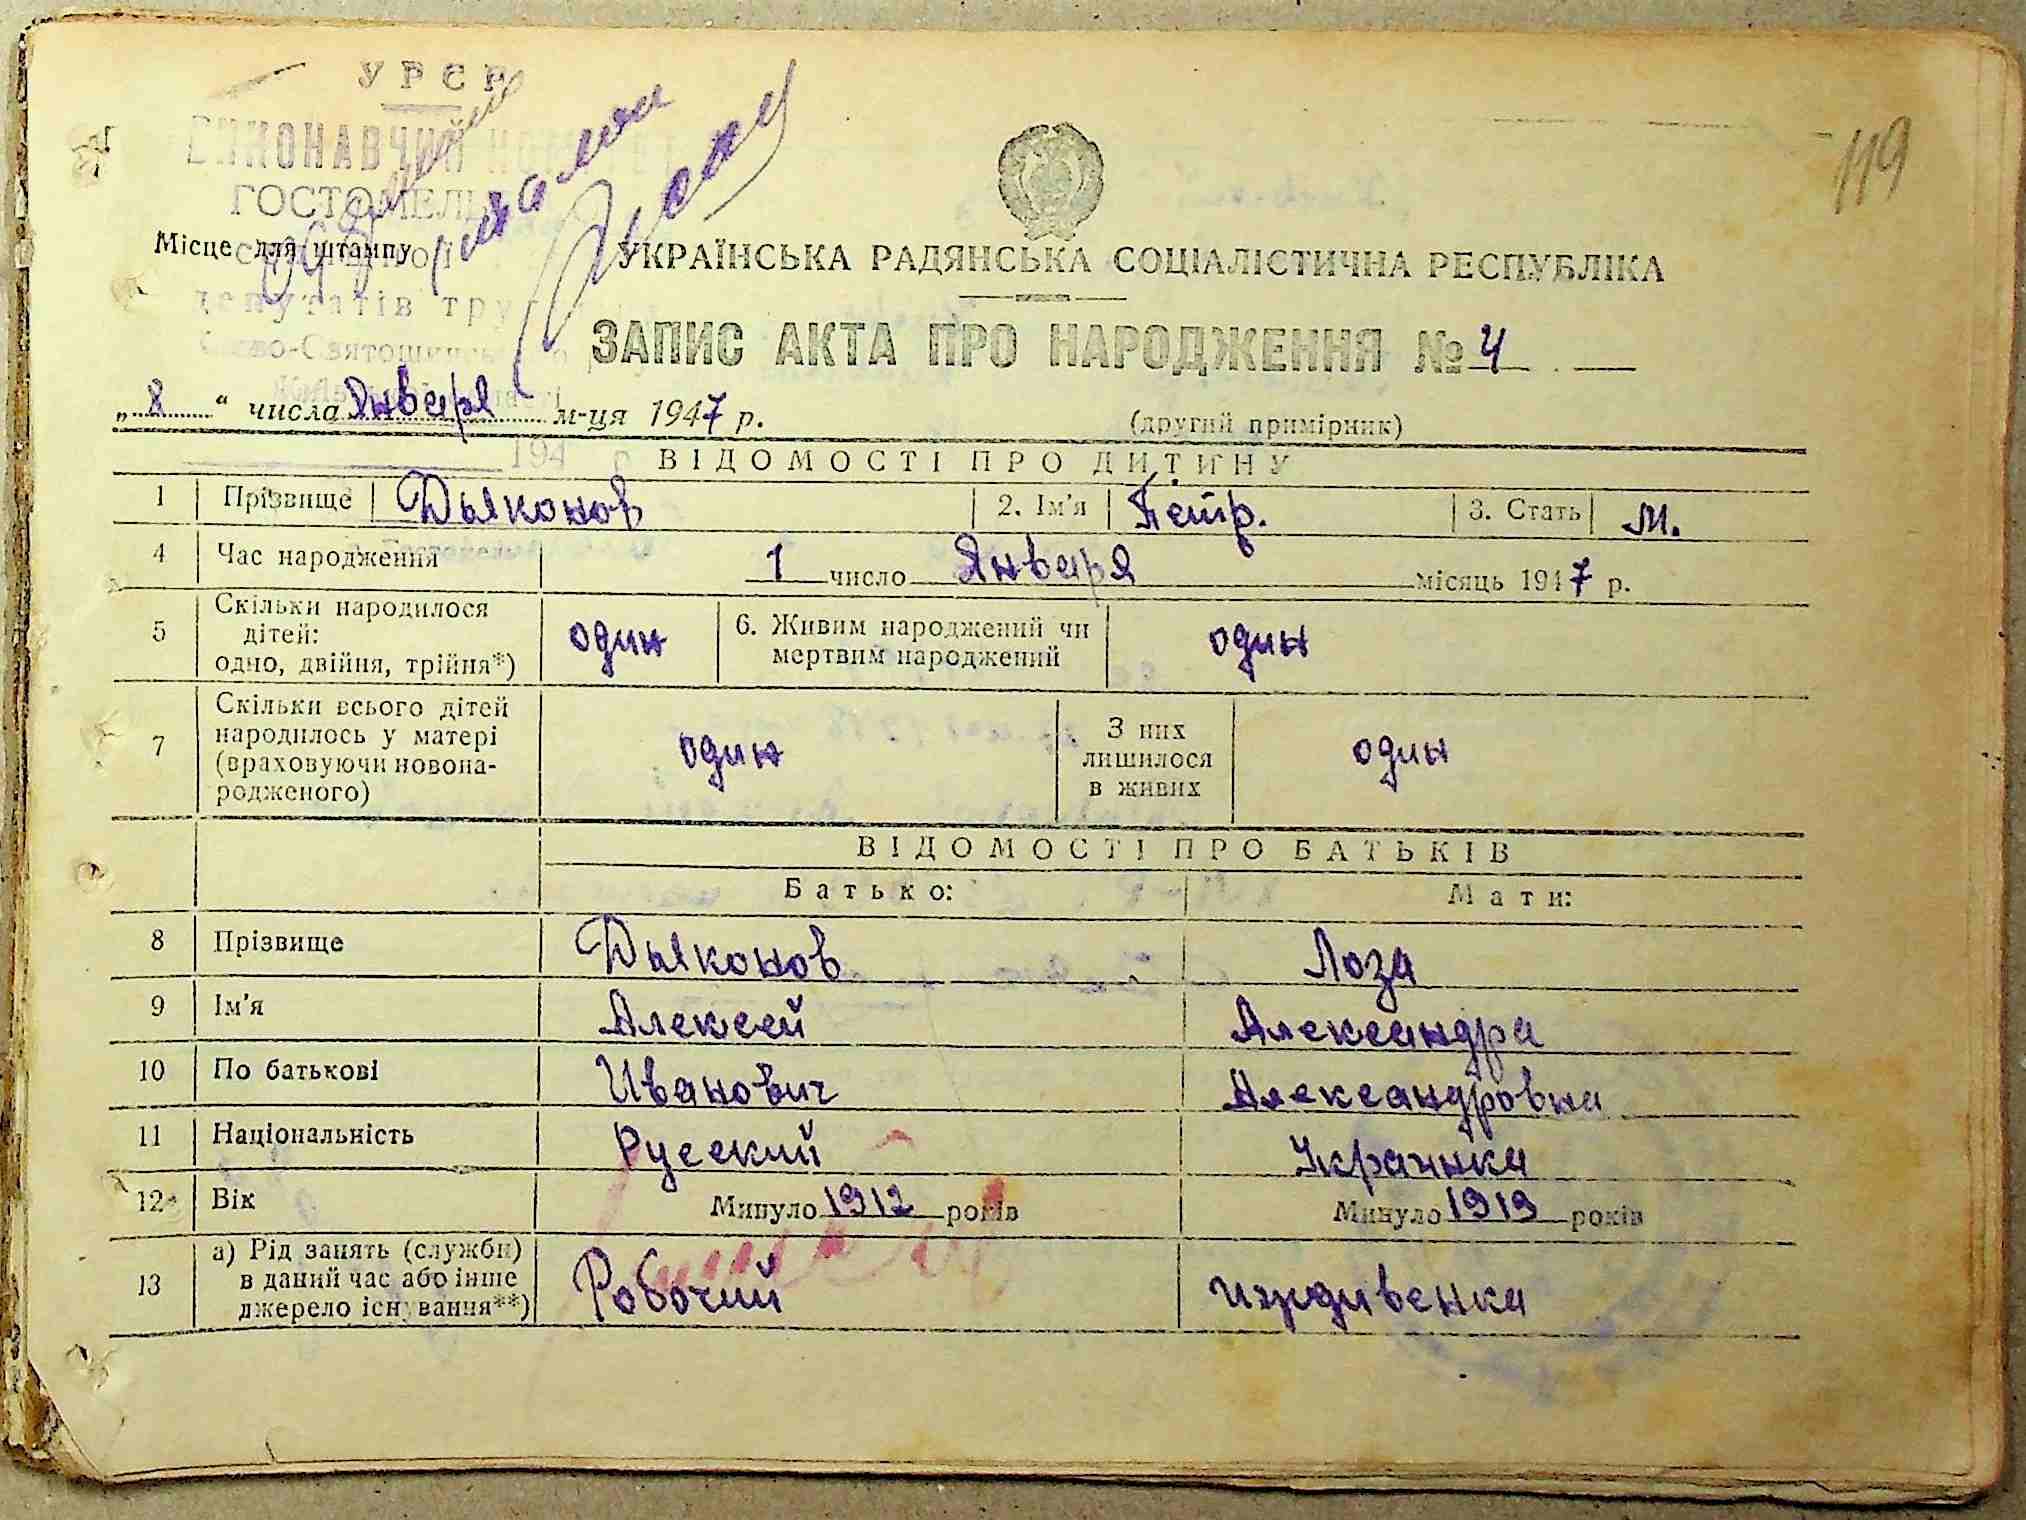 УРСР
ВИКОНАВЧИЙ КОМІТЕТ
ГОСТОМЕЛЬ
119
Місце для штампу
УКРАЇНСЬКА РАДЯНСЬКА СОЦІАЛІСТИЧНА РЕСПУБЛІКА
депутатів тру
ЗАПИС АКТА ПРО НАРОДЖЕННЯ № 4
„ 8 “ числа Января м-ця 1947 р.
(другий примірник)
194 р
ВІДОМОСТІ ПРО ДИТИНУ
1 Прізвище Дьяконов 2. Ім'я Петр. 3. Стать М.
4 Час народження 1 число Января місяць 1947 р.
5 Скільки народилося дітей: одно, двійня, трійня*) один 6. Живим народжений чи мертвим народжений один
7 Скільки всього дітей народилось у матері (враховуючи новонародженого) один З них лишилося в живих один
ВІДОМОСТІ ПРО БАТЬКІВ
Батько: Мати:
8 Прізвище Дьяконов Лоза
9 Ім'я Алексей Александра
10 По батькові Иванович Александровна
11 Національність Русский Украинка
12 Вік Минуло 1912 років Минуло 1919 років
13 а) Рід занять (служби) в даний час або інше джерело існування**) Робочий иждивенка